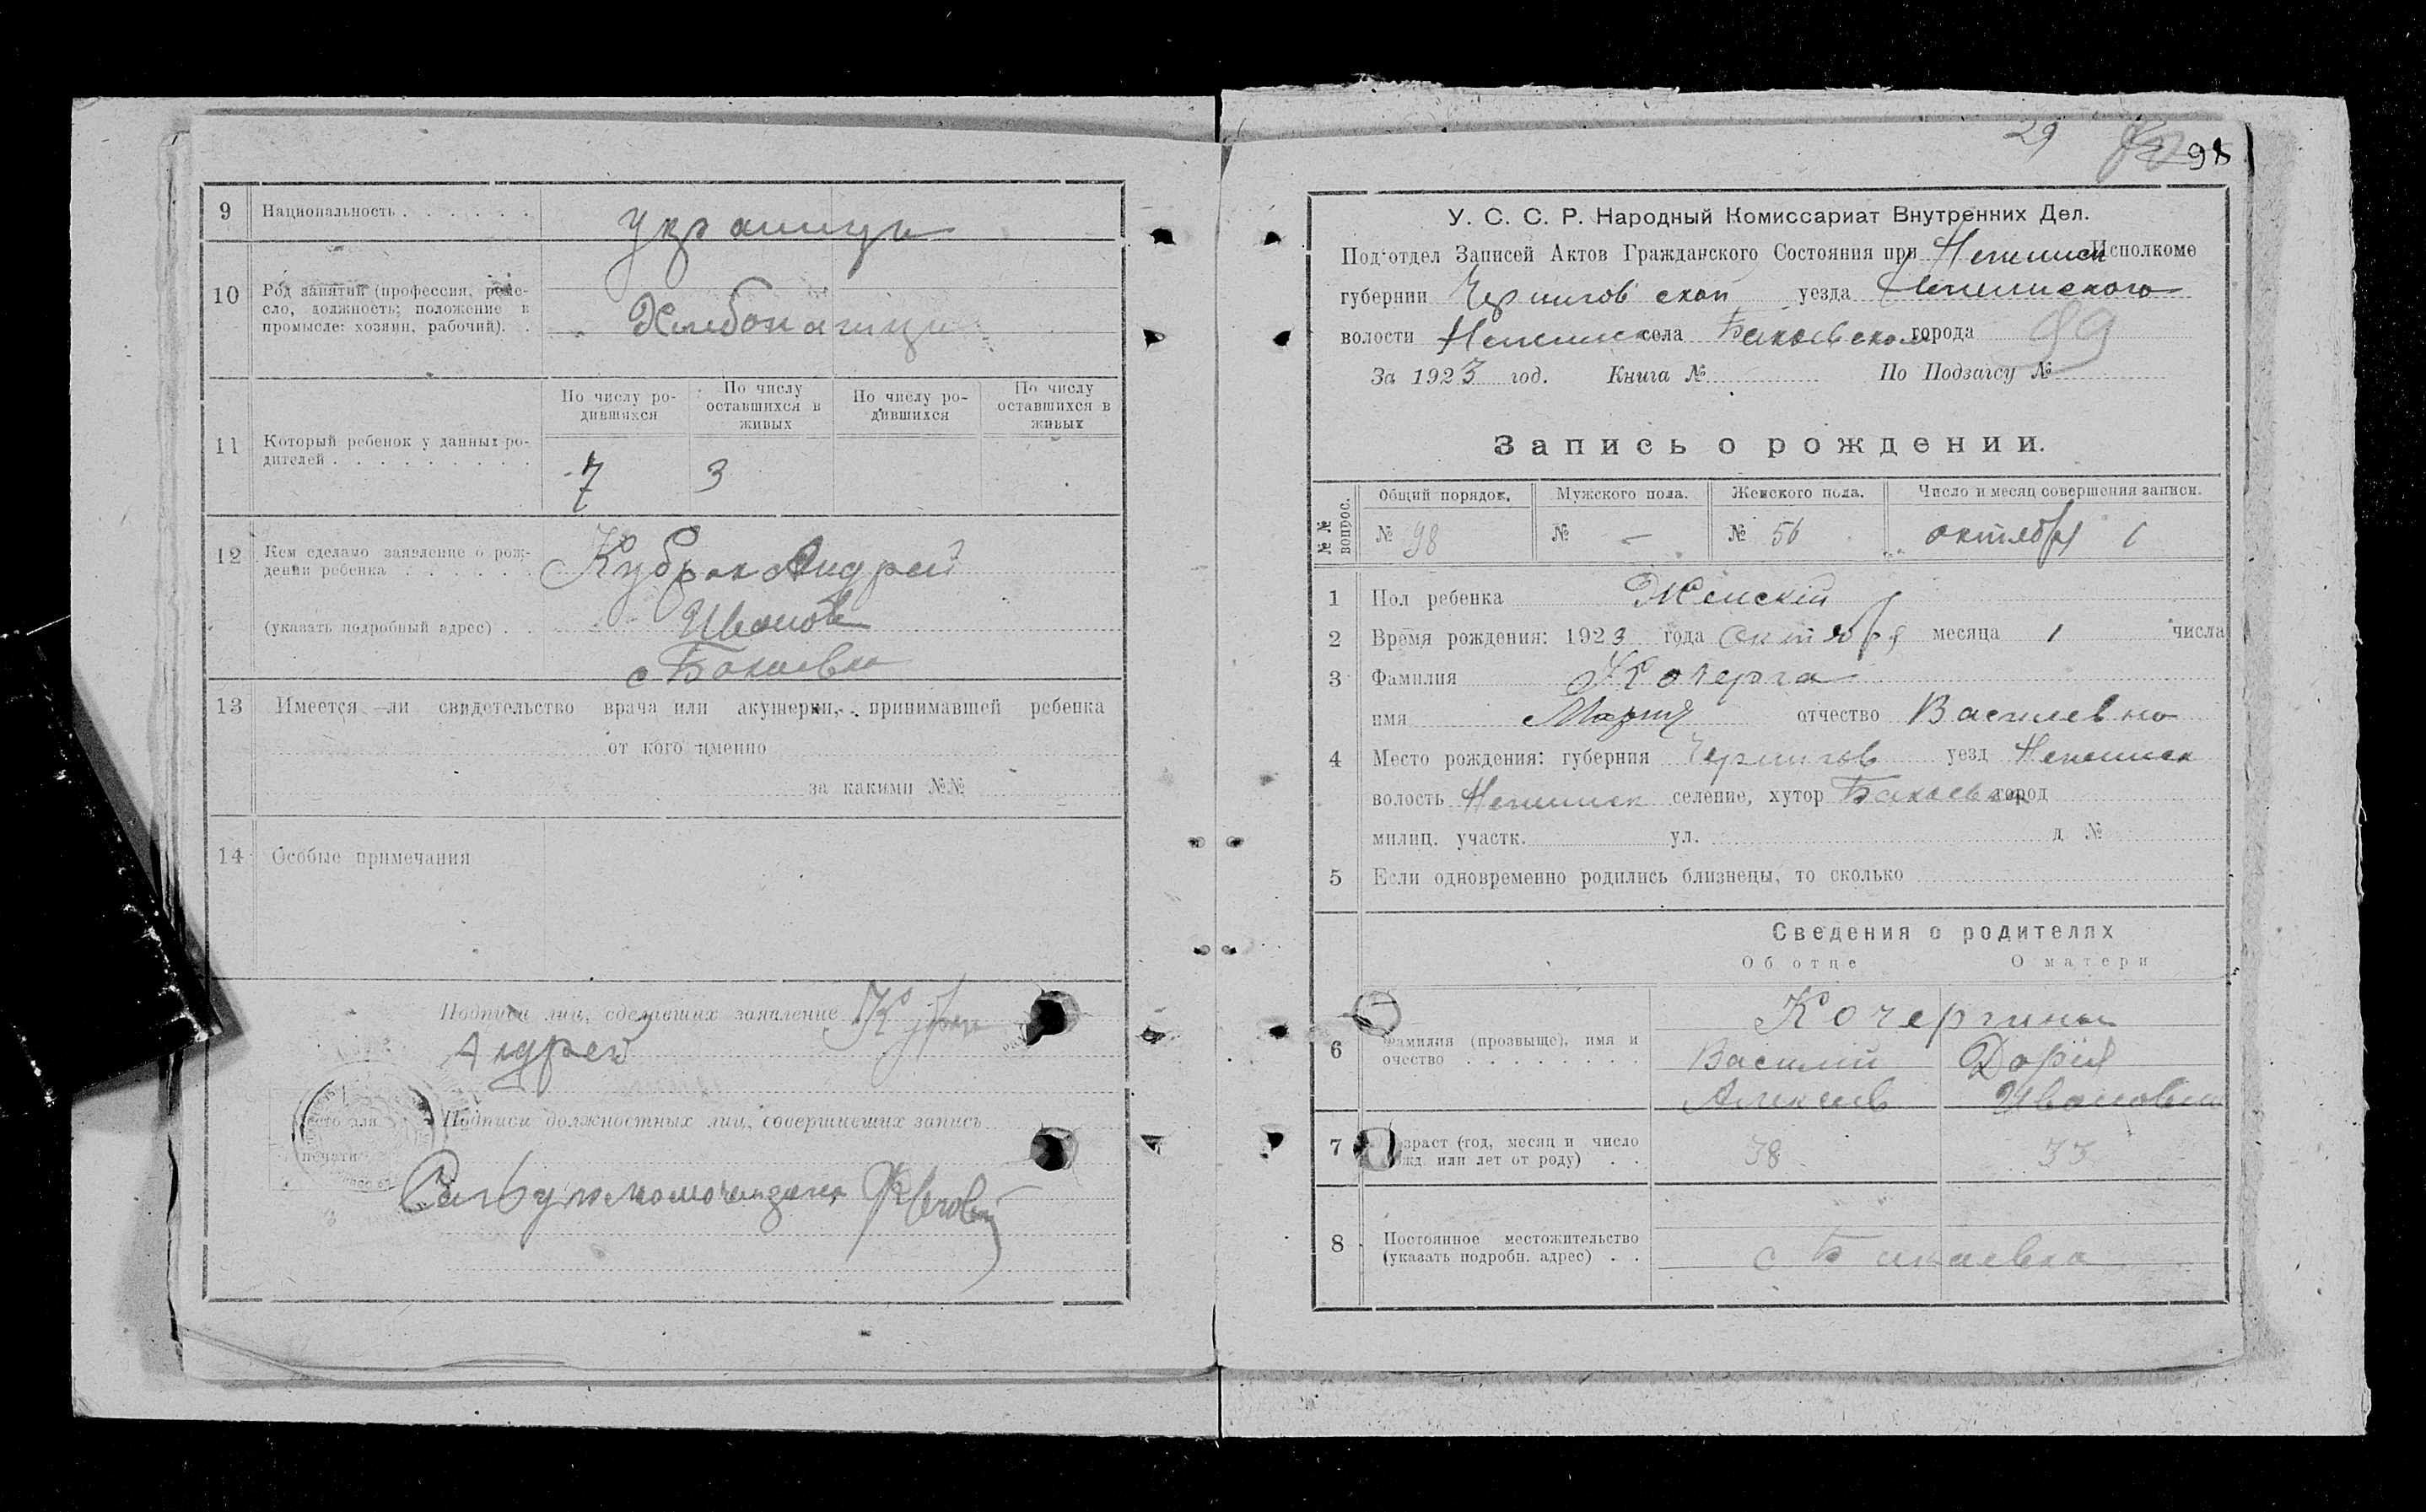 9 Национальность . . . . . .
украинци
10 Род занятий (профессия, реме-
сло, должность; положение в
промысле: хозяин, рабочий). .
Хлебопашци
11 Который ребенок у данных ро-
дителей . . . . . . . . .
По числу ро-
дившихся
По числу
оставшихся в
живых
По числу ро-
дившихся
По числу
оставшихся в
живых
7 3
12 Кем сделано заявление о рож-
дении ребенка . . . . . .
(указать подробный адрес) . .
Кубрак Андрей
Иванов
с Бакаевка
13 Имеется ли свидетельство врача или акушерки, принимавшей ребенка
от кого именно
за какими №№
14 Особые примечания
Подписи лиц, сделавших заявление Кубрак
Андрей
Место для
печати
Подписи должностных лиц, совершивших запись
29 98
У. С. С. Р. Народный Комиссариат Внутренних Дел.
Под'отдел Записей Актов Гражданского Состояния при Исполкоме
губернии Черниговской уезда
волости села Бакаевском города
99
За 1923 год. Книга № По Подзагсу №
Запись о рождении.
№№ вопрос.
Общий порядок. Мужского пола. Женского пола. Число и месяц совершения записи.
№ 98 № — № 56 октября 1
1 Пол ребенка Женский
2 Время рождения: 1923 года Октября месяца 1 числа
3 Фамилия Кочерга
имя Мария отчество Василевна
4 Место рождения: губерния Чернигов уезд
волость селение, хутор Бакаевка город
милиц. участк. ул. д №
5 Если одновременно родились близнецы, то сколько
Сведения о родителях
Об отце О матери
6 Фамилия (прозвыще), имя и
очество . . . . . . . .
Кочергины
Василий Дорія
Алексеев Ивановна
7 Возраст (год, месяц и число
рожд. или лет от роду) . .
38 33
8 Постоянное местожительство
(указать подробн. адрес) . .
с Бакаевка